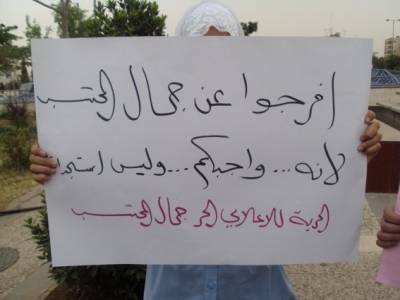 افرجوا عن جمال المحتسب
لانه... واجبكم... وليس استجداء
الحرية للاعلامي الحر جمال المحتسب